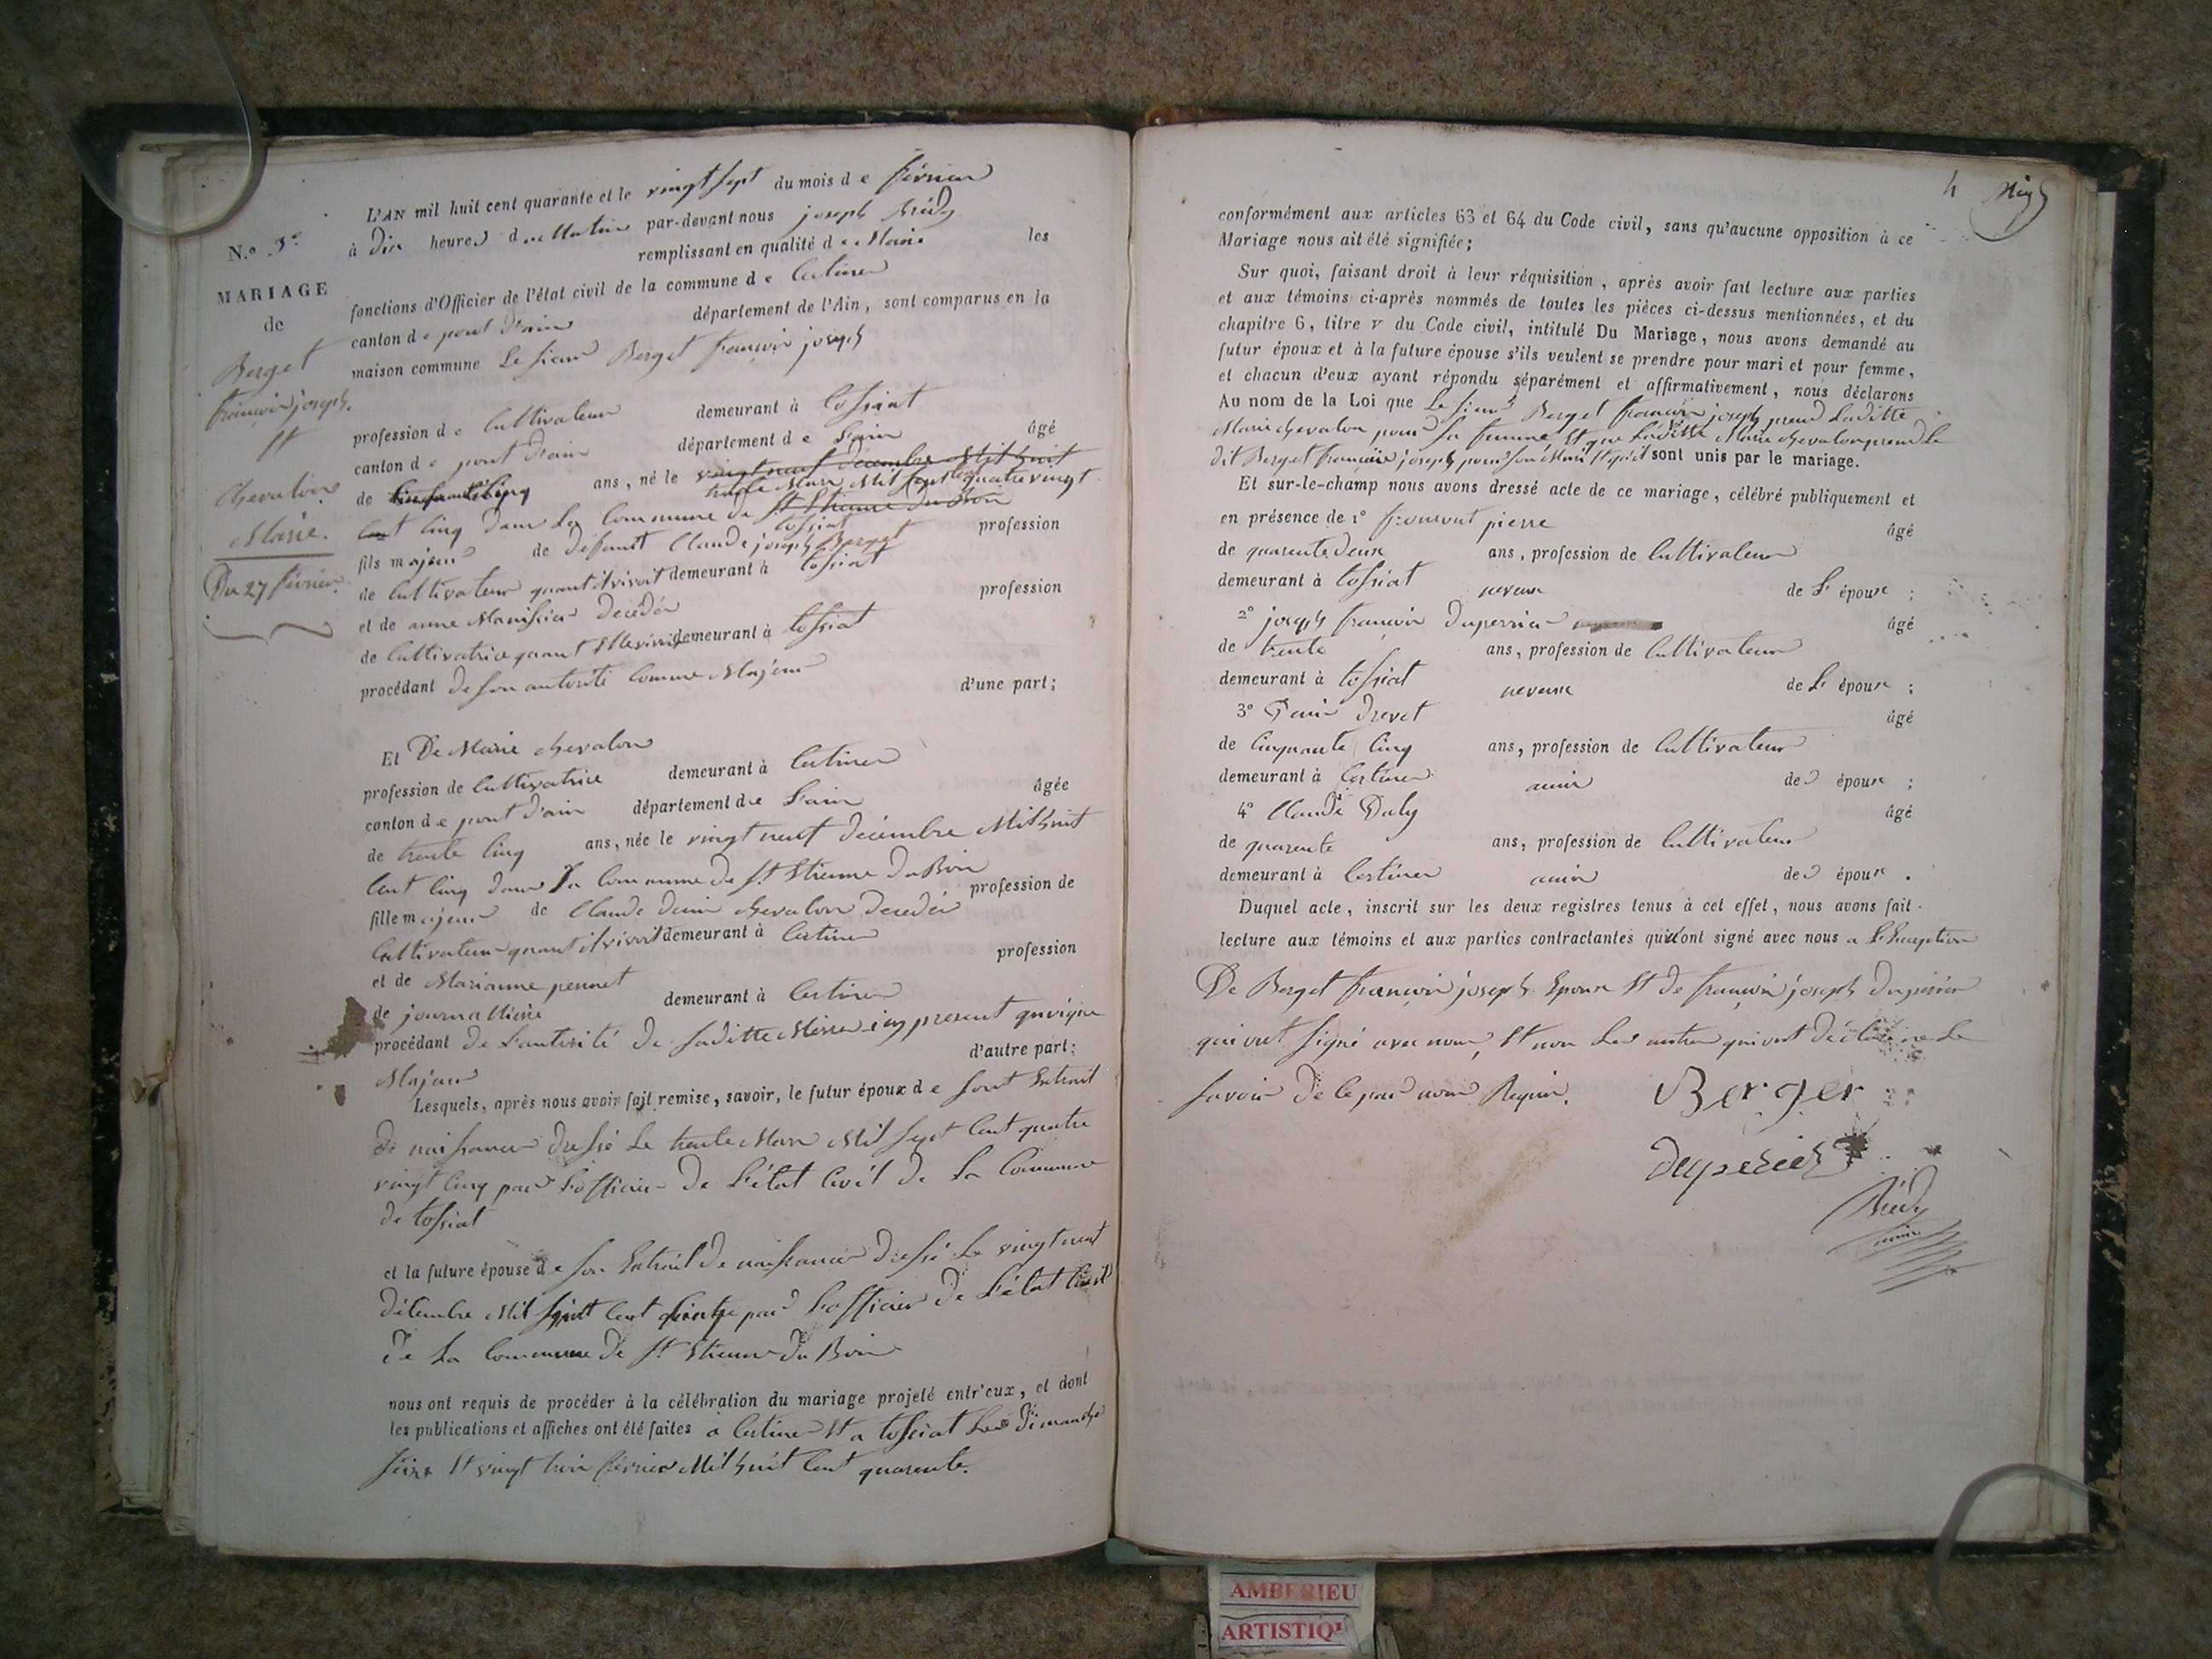 N.o 3e
MARIAGE
de
Berget
françois joseph.
Et
Chevalon
Marie.
Du 27 février.
L'AN mil huit cent quarante et le vingt sept du mois de février
à dix heures du Matin par-devant nous joseph
remplissant en qualité de Maire les
fonctions d'Officier de l'état civil de la commune de Certines
canton de pont d'ain département de l'Ain, sont comparus en la
maison commune Le sieur Berget françois joseph
profession de Cultivateur demeurant à tossiat
canton de pont d'ain département de l'ain âgé
de Cinquante Cinq ans, né le vingt neuf décembre Mil huit
trente Mars Mil sept cent quatre vingt
cent Cinq dans La Commune de St Etienne du Bois
tossiat
fils majeur de défunt Claude joseph Berget profession
de Cultivateur quant il vivoit demeurant à tossiat
et de anne décédée profession
de Cultivatrice quant Elle vivoit demeurant à tossiat
procédant de son autorité Comme Majeur d'une part;
Et De Marie chevalon
profession de Cultivatrice demeurant à Certines
canton de pont d'ain département de l'ain âgée
de trente Cinq ans, née le vingt neuf décembre Mil huit
Cent Cinq dans la Commune de St Etienne du Bois
fille majeure de Claude denis chevalon décédé profession de
Cultivateur quant il vivoit demeurant à Certines
et de Marianne pennet profession
de journallière demeurant à Certines
procédant de l'autorité de saditte Mère icy present quoique
Majeur d'autre part;
Lesquels, après nous avoir fait remise, savoir, le futur époux de sont Extrait
de naissance dressé Le trente Mars Mil sept Cent quatre
vingt Cinq par L'officier de L'état Civil de La Commune
de tossiat
et la future épouse de son Extrait de naissance dressé Le vingt neuf
décembre Mil Cent par L'officier de L'état Civil
de La Commune de St Etienne du Bois
nous ont requis de procéder à la célébration du mariage projeté entr'eux, et dont
les publications et affiches ont été faites a Certines Et a tossiat Les dimanche
seize Et vingt trois février Mil huit Cent quarente.
4
conformément aux articles 63 et 64 du Code civil, sans qu'aucune opposition à ce
Mariage nous ait été signifiée;
Sur quoi, faisant droit à leur réquisition, après avoir fait lecture aux parties
et aux témoins ci-après nommés de toutes les pièces ci-dessus mentionnées, et du
chapitre 6, titre v du Code civil, intitulé Du Mariage, nous avons demandé au
futur époux et à la future épouse s'ils veulent se prendre pour mari et pour femme,
et chacun d'eux ayant répondu séparément et affirmativement, nous déclarons
Au nom de la Loi que Le sieur Berget françois joseph prend Laditte
Marie chevalon pour sa femme Et que Laditte Marie chevalon prend Le
dit Berget françois joseph pour son Mari Et qu'il sont unis par le mariage.
Et sur-le-champ nous avons dressé acte de ce mariage, célébré publiquement et
en présence de 1o pierre âgé
de quarente deux ans, profession de Cultivateur
demeurant à tossiat neveux de L'époux ;
2o joseph françois Duperrier âgé
de trente ans, profession de Cultivateur
demeurant à tossiat neveux de L'époux ;
3o Denis Drevet âgé
de Cinquante Cinq ans, profession de Cultivateur
demeurant à Certines amis des époux ;
4o Claude Daly âgé
de quarente ans, profession de Cultivateur
demeurant à Certines amis des époux .
Duquel acte, inscrit sur les deux registres tenus à cet effet, nous avons fait
lecture aux témoins et aux parties contractantes qui ont signé avec nous a L'Exception
De Berget françois joseph Epoux Et de françois joseph Duperrier
qui ont signé avec nous, Et non Les autres qui ont déclaré ne Le
savoir de Ce par nous Requis.
Berger
duperier
AMBERIEU
ARTISTIQ